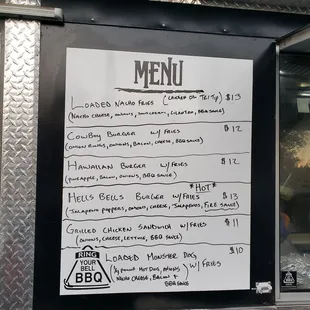 MENU
LOADED NACHO FRIES (CHICKEN OR TRI TIP) $13
(NACHO CHEESE, ONIONS, SOUR CREAM, CILANTRO, BBQ SAUCE)
COWBOY BURGER W/ FRIES $12
(ONION RINGS, ONIONS, BACON, CHEESE, BBQ SAUCE)
HAWAIIAN BURGER W/ FRIES $12
(PINEAPPLE, BACON, ONIONS, BBQ SAUCE)
*HOT*
HELLS BELLS BURGER W/ FRIES $13
(JALAPENO POPPERS, ONIONS, CHEESE, JALAPENOS, FIRE SAUCE)
GRILLED CHICKEN SANDWICH W/ FRIES $11
(ONIONS, CHEESE, LETTUCE, BBQ SAUCE)
LOADED MONSTER DOG $10
(1/2 POUND HOT DOG, ONIONS, W/ FRIES
NACHO CHEESE, BACON &
BBQ SAUCE)
RING
YOUR
BELL
BBQ